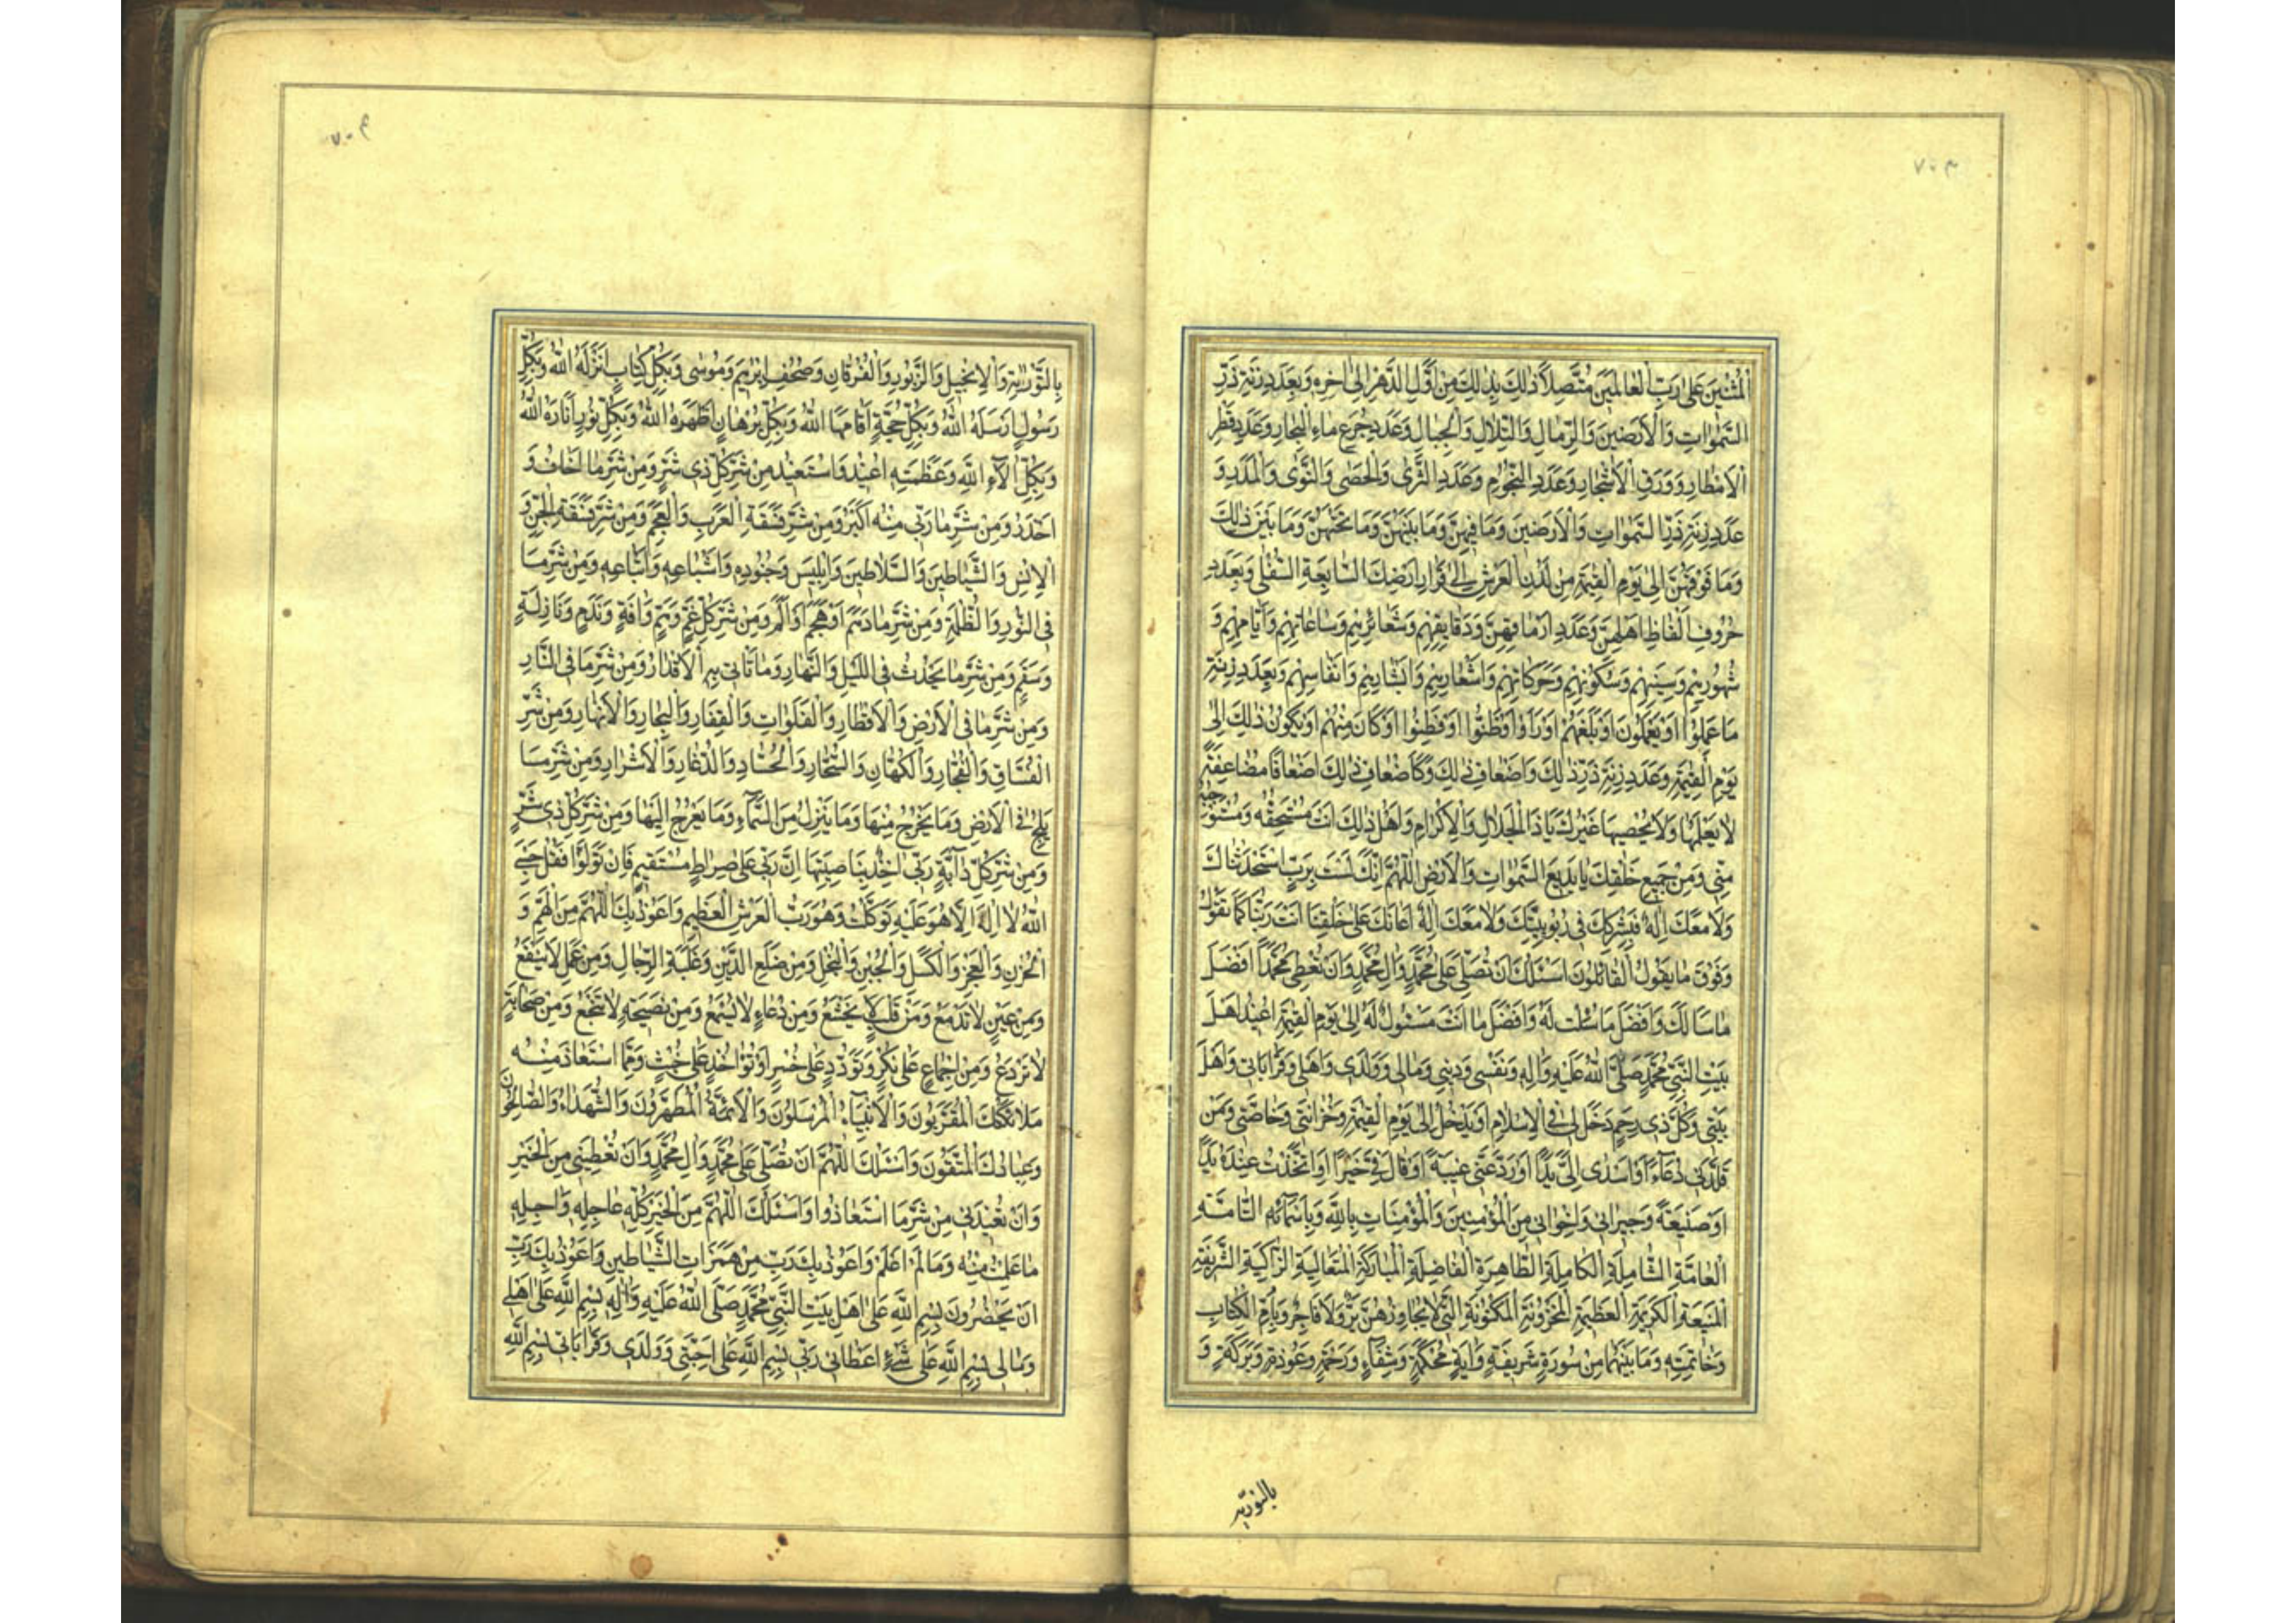 ٧٠٣
المثنين على رب العالمين متصلا ذلك بذلك من اول الدهر الى اخره وبعدد زنة ذر
السموات والارضين والرمال والتلال والجبال وعدد جرع ماء البحار وعدد قطر
الامطار وورق الاشجار وعدد النجوم وعدد الثرى والحصى والنوى والمدر و
عدد زنة ذر السموات والارضين وما فيهن وما بينهن وما تحتهن وما بين ذلك
وما فوقهن الى يوم القيمة من لدن العرش الى قرار ارضك السابعة السفلى وبعدد
حروف الفاظ اهلهن وعدد ارماقهن ودقايقهم وشعائرهم وساعاتهم وايامهم و
شهورهم وسنيهم وسكونهم وحركاتهم واشعارهم وابشارهم وانفاسهم وبعدد زنة
ما عملوا او يعملون او بلغهم او راوا او ظنوا او فطنوا او كان منهم او يكون ذلك الى
يوم القيمة وعدد زنة ذر ذلك واضعاف ذلك وكاضعاف ذلك اضعافا مضاعفة
لا يعلمها ولا يحصيها غيرك يا ذا الجلال والاكرام واهل ذلك انت مستحقه ومستوجبه
منى ومن جميع خلقك يا بديع السموات والارض اللهم انك لست برب استحدثناك
ولا معك اله فيشركك فى ربوبيتك ولا معك اله اعانك على خلقنا انت ربنا كما نقول
وفوق ما يقول القائلون اسئلك ان تصلى على محمد وال محمد وان تعطى محمدا افضل
ما سالك وافضل ما سئلت له وافضل ما انت مسئول له الى يوم القيمة اعيذ اهل
بيت النبى محمد صلى الله عليه واله ونفسى ودينى ومالى وولدى واهلى وقراباتى واهل
بيتى وكل ذى رحم دخل لى فى الاسلام او يدخل الى يوم القيمة وحزانتى وخاصتى ومن
قلدنى دعاء او اسدى الى يدا او رد عنى غيبة او قال فى خيرا او اتخذت عنده يدا
او صنيعة وجيرانى واخوانى من المؤمنين والمؤمنات بالله وباسمائه التامة
العامة الشاملة الكاملة الطاهرة الفاضلة المباركة المتعالية الزاكية الشريفة
المنيعة الكريمة العظيمة المخزونة المكنونة التى لا يجاوزهن بر ولا فاجر وبام الكتاب
وخاتمته وما بينهما من سورة شريفة واية محكمة وشفاء ورحمة وعوذة وبركة و
بالتورية
٧٠٤
بالتورية والانجيل والزبور والفرقان وصحف ابرهيم وموسى وبكل كتاب انزله الله وبكل
رسول ارسله الله وبكل حجة اقامها الله وبكل برهان اظهره الله وبكل نور اناره الله
وبكل الاء الله وعظمته اعيذ واستعيذ من شر كل ذى شر ومن شر ما اخاف و
احذر ومن شر ما ربى منه اكبر ومن شر فسقة العرب والعجم ومن شر فسقة الجن و
الانس والشياطين والسلاطين وابليس وجنوده واشياعه واتباعه ومن شر ما
فى النور والظلمة ومن شر ما دهم او هجم او الم ومن شر كل غم وهم وافة وندم ونازلة
وسقم ومن شر ما يحدث فى الليل والنهار وما تاتى به الاقدار ومن شر ما فى النار
ومن شر ما فى الارض والاقطار والفلوات والقفار والبحار والانهار ومن شر
الفساق والفجار والكهان والسحار والحساد والذعار والاشرار ومن شر ما
يلج فى الارض وما يخرج منها وما ينزل من السماء وما يعرج اليها ومن شر كل ذى شر
ومن شر كل دابة ربى اخذ بناصيتها ان ربى على صراط مستقيم فان تولوا فقل حسبى
الله لا اله الا هو عليه توكلت وهو رب العرش العظيم واعوذ بك اللهم من الهم و
الحزن والعجز والكسل والجبن والبخل ومن ضلع الدين وغلبة الرجال ومن عمل لا ينفع
ومن عين لا تدمع ومن قلب لا يخشع ومن دعاء لا يسمع ومن نصيحة لا تنجع ومن صحابة
لا تردع ومن اجماع على نكر وتودد على خسر او تواخذ على خبث ومما استعاذ منه
ملائكتك المقربون والانبياء المرسلون والائمة المطهرون والشهداء والصالحون
وعبادك المتقون واسئلك اللهم ان تصلى على محمد وال محمد وان تعطينى من الخير
وان تعيذنى من شر ما استعاذوا واسئلك اللهم من الخير كله عاجله واجله
ما علمت منه وما لم اعلم واعوذ بك رب من همزات الشياطين واعوذ بك رب
ان يحضرون بسم الله على اهل بيت النبى محمد صلى الله عليه واله بسم الله على اهلى
ومالى بسم الله على كل شىء اعطانى ربى بسم الله على احبتى وولدى وقراباتى بسم الله